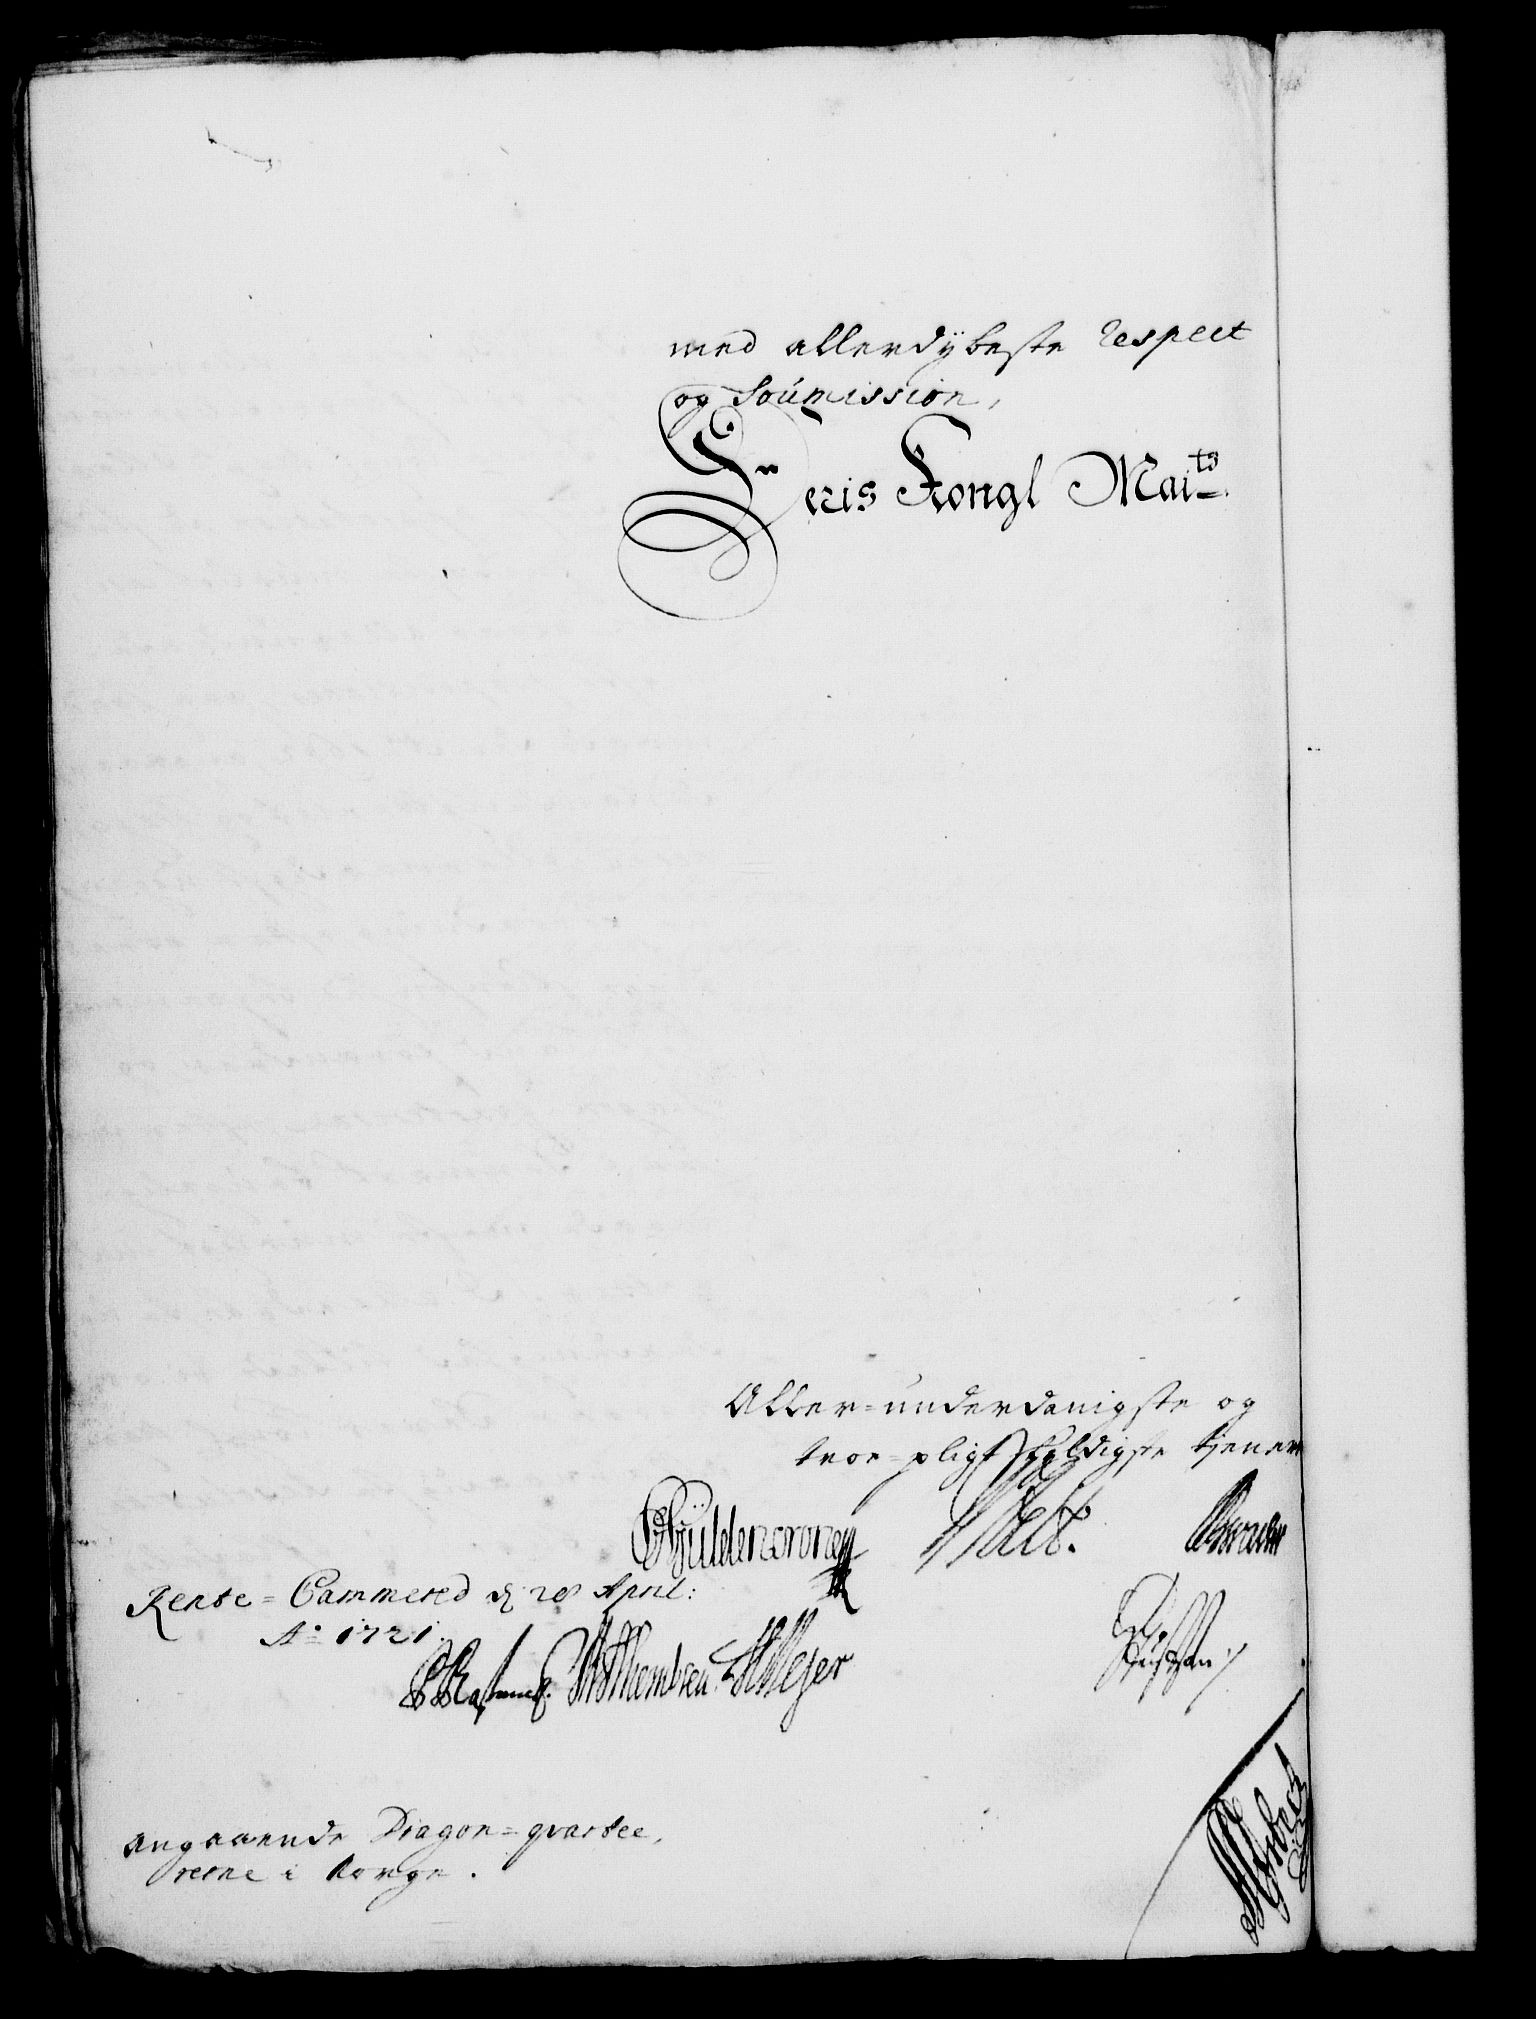 med allerdÿbeste respect
og Soumission,
Deris Kongl Maits
Aller=underdanigste og
troe=pligtskyldigste tienere
Gÿldencrone
Rente=Cammered d 28 April:
Ao 1721.
Meÿer
angaaende Dragon=qvartee,
rerne i Norge.